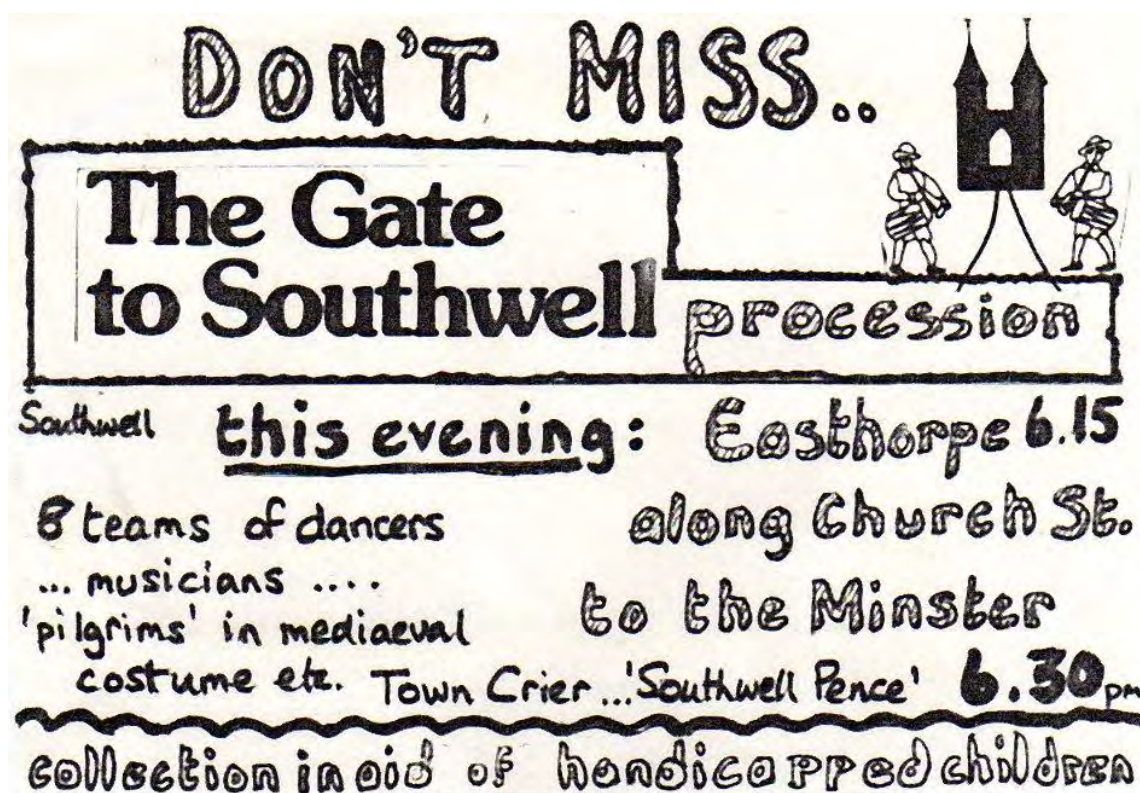 DON'T MISS..
The Gate
to Southwell
procession
Southwell this evening: Easthorpe 6.15
along Church St.
to the Minster
6.30 pm
8 teams of dancers
... musicians ....
'pilgrims' in mediaeval
costume etc. Town Crier ... 'Southwell Pence'
collection in aid of handicapped children